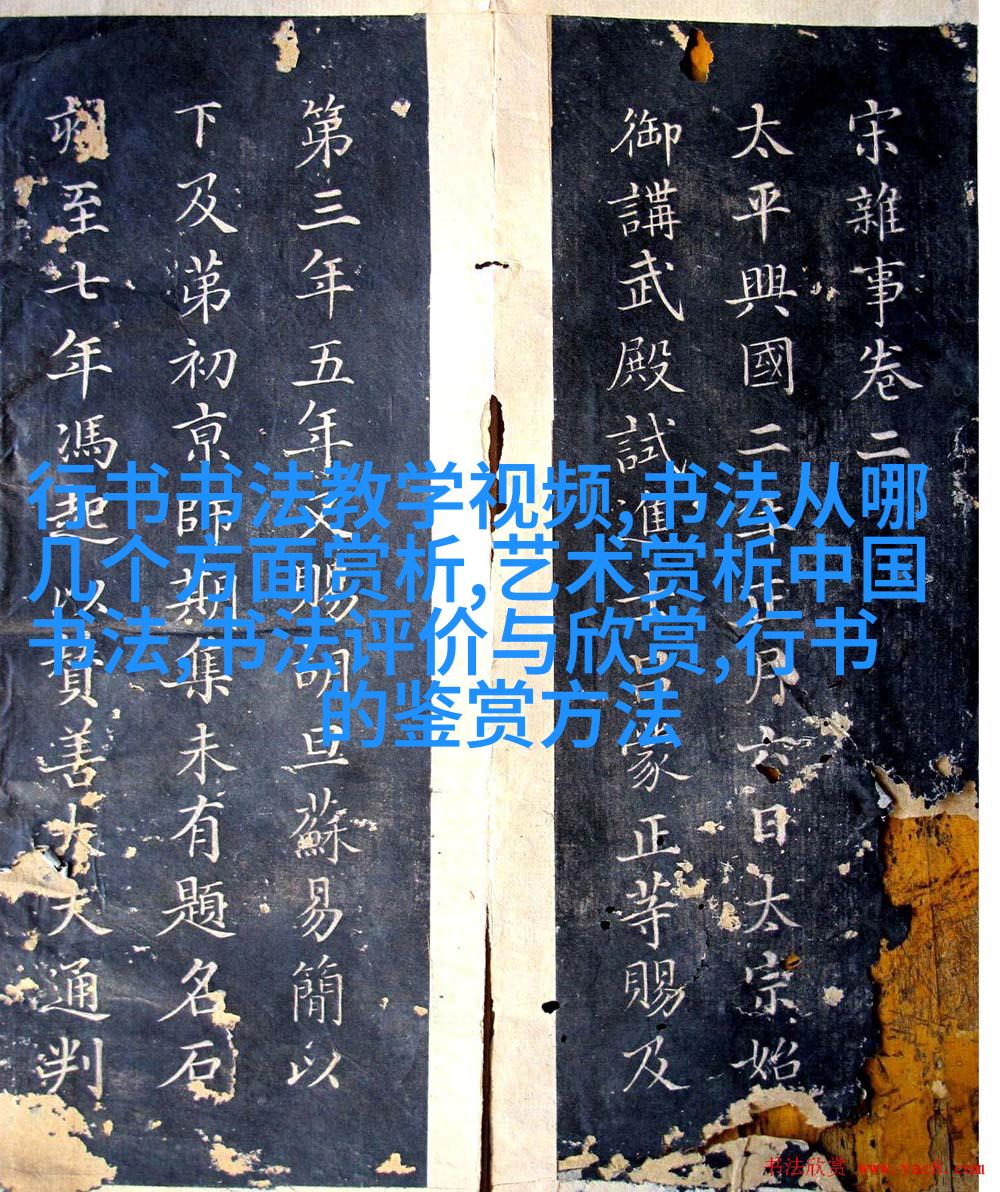 宋雜事卷二
太平興國二年正月六日太宗始
御講武殿試進士呂蒙正等賜及
第三年五年又賜胡旦蘇易簡以
下及苐初亰師期集未有題名石
至七年馮起以善大夫通判
行书书法教学视频,书法从哪
几个方面赏析,艺术赏析中国
书法,书法评价与欣赏,行书
的鉴赏方法
书法欣赏 www.yac8.com